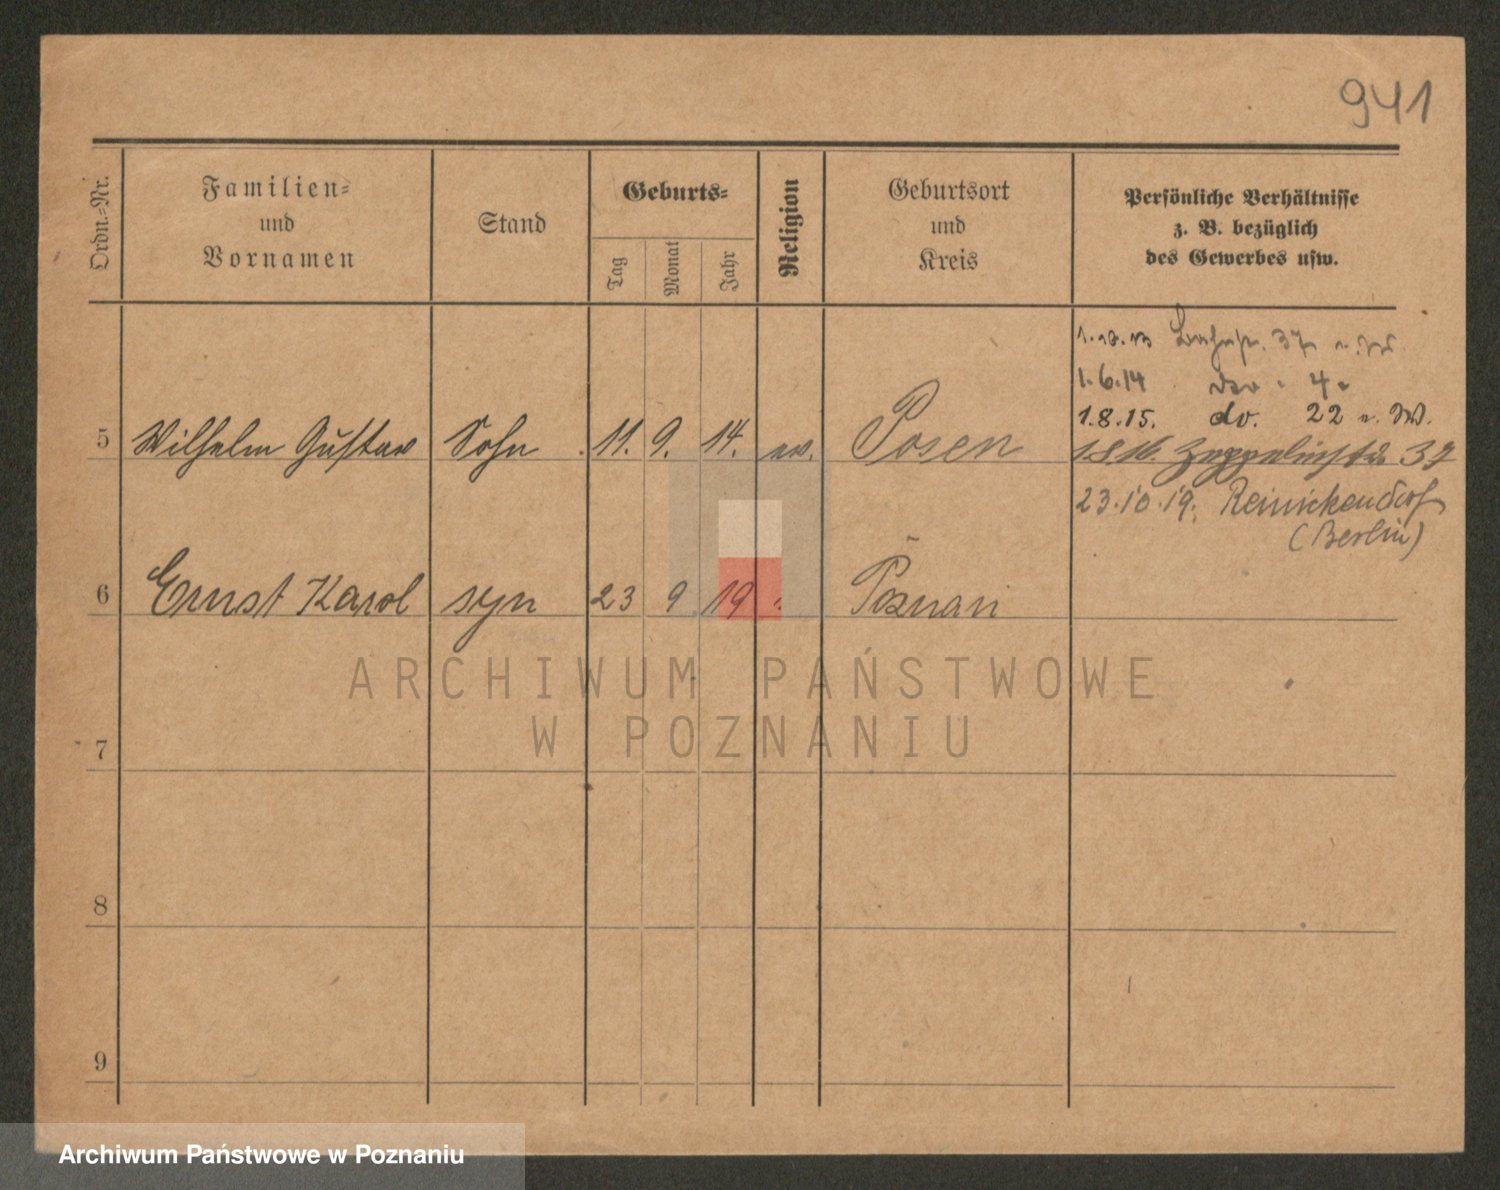 941
Ordn.=Nr.
Familien=
und
Vornamen
Stand
Geburts=
Tag
Monat
Jahr
Religion
Geburtsort
und
Kreis
Persönliche Verhältnisse
z. B. bezüglich
des Gewerbes usw.
37
1.6.14 4
1.8.15. do. 22
5 Wilhelm Gustav Sohn 11. 9. 14. ev. Posen
Zeppelinstr.
23.10.19. Reinickendorf
(Berlin)
6 Ernst Karol syn 23 9 19 Poznań
7
8
9
ARCHIWUM PAŃSTWOWE
W POZNANIU
Archiwum Państwowe w Poznaniu